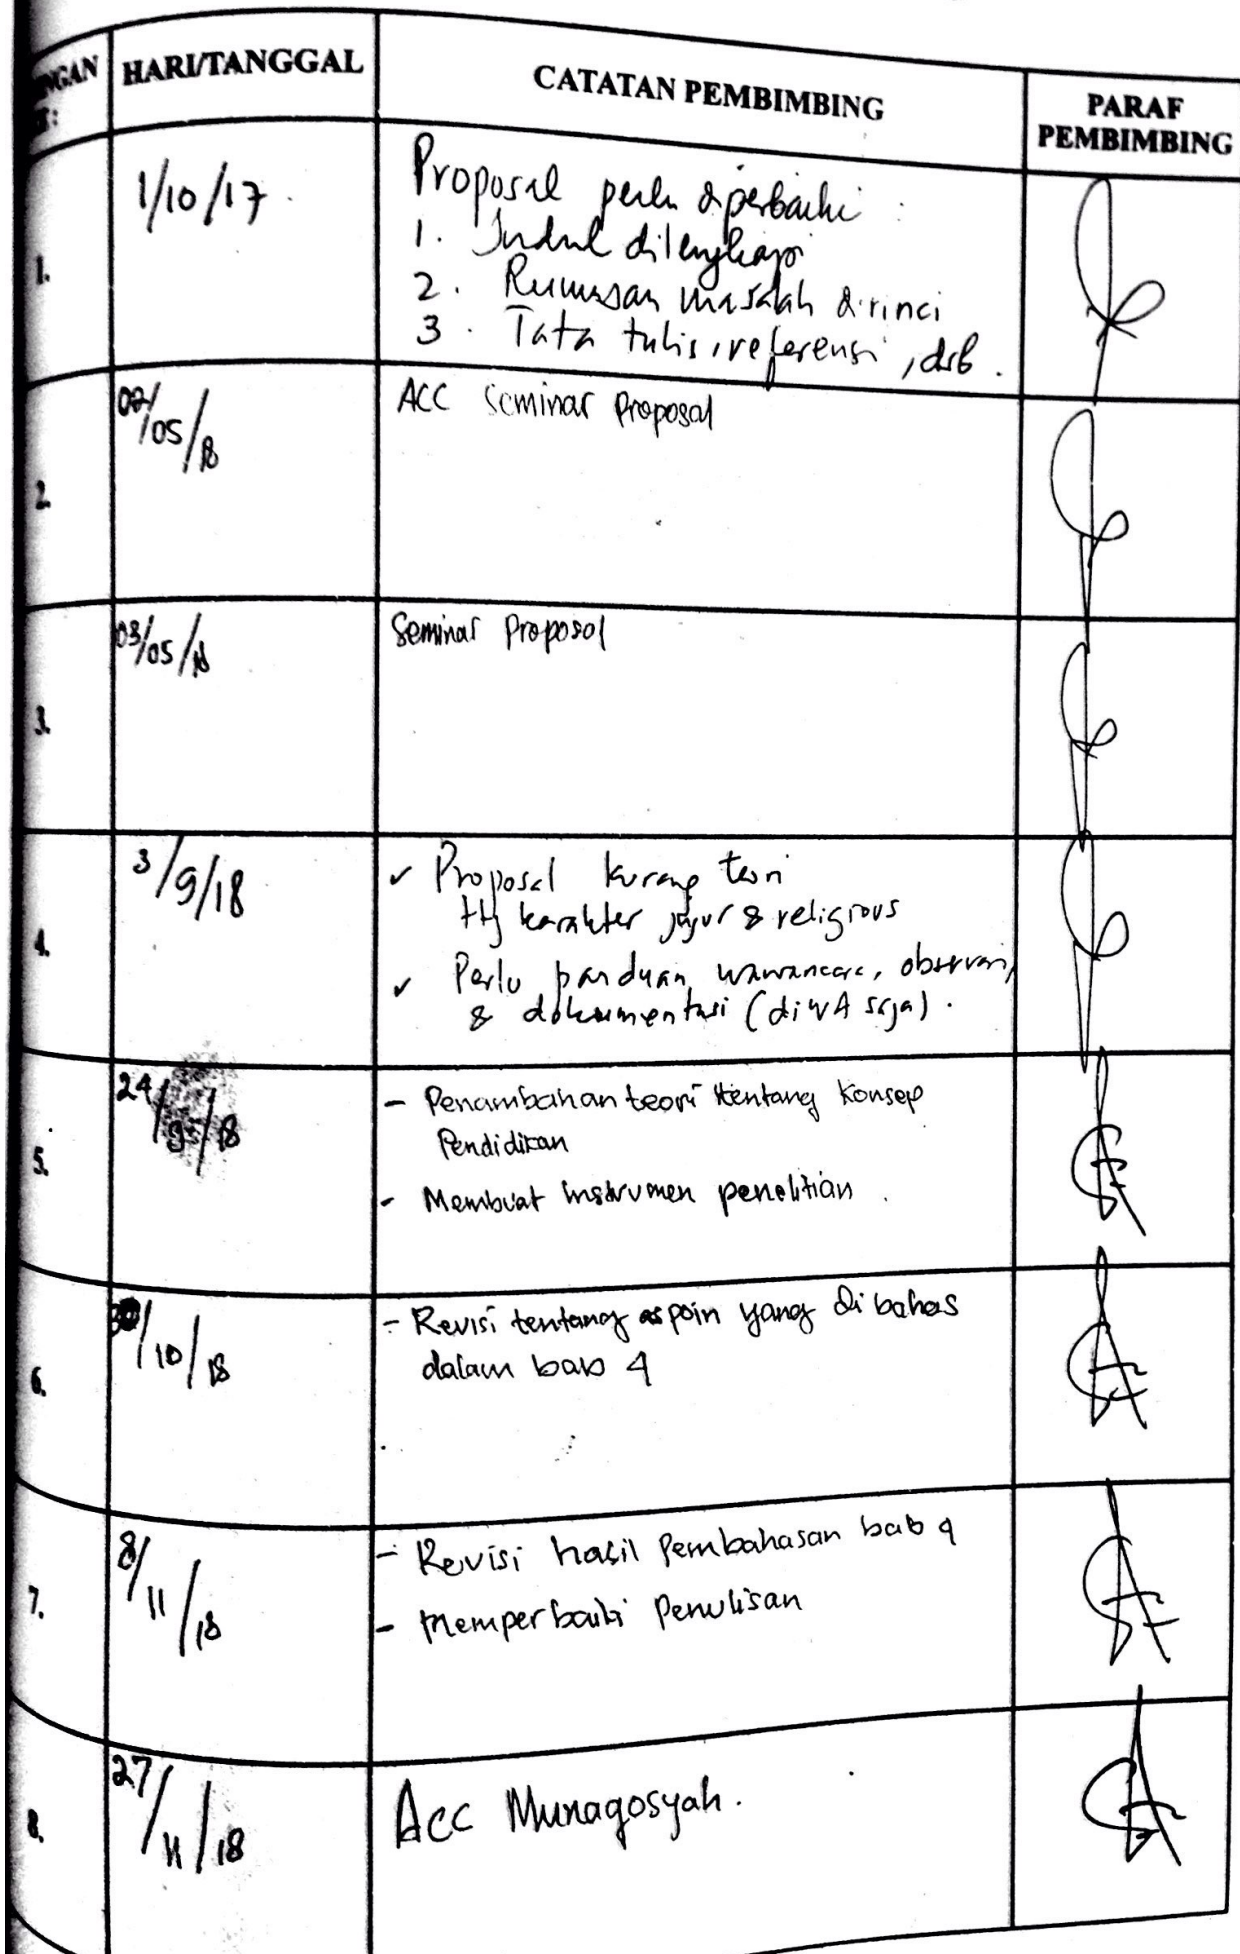 HARI/TANGGAL
CATATAN PEMBIMBING
PARAF
PEMBIMBING
1.
1/10/17
Proposal perlu diperbaiki :
1. Judul dilengkapi
2. Rumusan masalah dirinci
3. Tata tulis, referensi, dsb.
2.
02/05/18
ACC Seminar Proposal
3.
03/05/18
Seminar Proposal
4.
3/9/18
✓ Proposal kurang teori
ttg karakter jujur & religious
✓ Perlu panduan wawancara, observasi,
& dokumentasi (diWA saja).
5.
24/ /18
- Penambahan teori tentang Konsep
Pendidikan
- Membuat instrumen penelitian.
6.
/10/18
- Revisi tentang aspoin yang di bahas
dalam bab 4
7.
8/11/18
- Revisi hasil Pembahasan bab 4
- memperbaiki Penulisan
8.
27/11/18
Acc Munaqosyah.